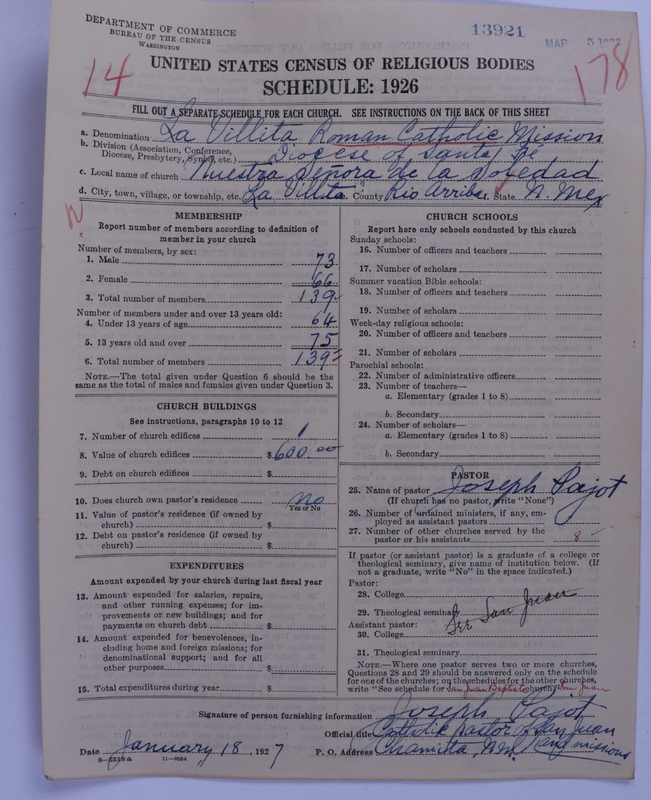 DEPARTMENT OF COMMERCE
BUREAU OF THE CENSUS
WASHINGTON
13921
MAR 5 1927
14
178
UNITED STATES CENSUS OF RELIGIOUS BODIES
SCHEDULE: 1926
FILL OUT A SEPARATE SCHEDULE FOR EACH CHURCH. SEE INSTRUCTIONS ON THE BACK OF THIS SHEET
a. Denomination La Villita Roman Catholic Mission
b. Division (Association, Conference,
Diocese, Presbytery, Synod, etc.) Diocese of Santa Fe
c. Local name of church Nuestra Señora de la Soledad
d. City, town, village, or township, etc. La Villita e. County Rio Arriba f. State N. Mex
MEMBERSHIP
Report number of members according to definition of
member in your church
Number of members, by sex:
1. Male 73
2. Female 66
3. Total number of members 139
Number of members under and over 13 years old:
4. Under 13 years of age 64
5. 13 years old and over 75
6. Total number of members 139
NOTE.—The total given under Question 6 should be the
same as the total of males and females given under Question 3.
CHURCH BUILDINGS
See instructions, paragraphs 10 to 12
7. Number of church edifices 1
8. Value of church edifices $600.00
9. Debt on church edifices $
10. Does church own pastor's residence no
Yes or No
11. Value of pastor's residence (if owned by
church) $
12. Debt on pastor's residence (if owned by
church) $
EXPENDITURES
Amount expended by your church during last fiscal year
13. Amount expended for salaries, repairs,
and other running expenses; for im-
provements or new buildings; and for
payments on church debt $
14. Amount expended for benevolences, in-
cluding home and foreign missions; for
denominational support; and for all
other purposes $
15. Total expenditures during year $
CHURCH SCHOOLS
Report here only schools conducted by this church
Sunday schools:
16. Number of officers and teachers
17. Number of scholars
Summer vacation Bible schools:
18. Number of officers and teachers
19. Number of scholars
Week-day religious schools:
20. Number of officers and teachers
21. Number of scholars
Parochial schools:
22. Number of administrative officers
23. Number of teachers—
a. Elementary (grades 1 to 8)
b. Secondary
24. Number of scholars—
a. Elementary (grades 1 to 8)
b. Secondary
PASTOR
25. Name of pastor Joseph Pajot
(If church has no pastor, write "None")
26. Number of ordained ministers, if any, em-
ployed as assistant pastors
27. Number of other churches served by the
pastor or his assistants 8
If pastor (or assistant pastor) is a graduate of a college or
theological seminary, give name of institution below. (If
not a graduate, write "No" in the space indicated.)
Pastor:
28. College
29. Theological seminary See San Juan
Assistant pastor:
30. College
31. Theological seminary
NOTE.—Where one pastor serves two or more churches,
Questions 28 and 29 should be answered only on the schedule
for one of the churches; on the schedules for the other churches,
write "See schedule for San Juan Baptiste church" San Juan
Signature of person furnishing information Joseph Pajot
Official title Catholic pastor of San Juan
and missions
Date January 18, 1927 P. O. Address Chamita, N.M.
8-5518a 11-9684